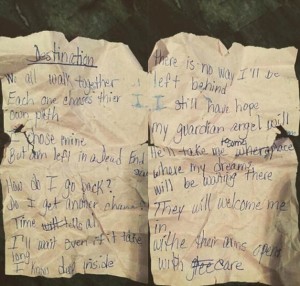 Destination
We all walk together
Each one choses thier
own path
I chose mine
But am left in a dead End
How do I go back?
do I get another chance
Time will tell
I'll wait even if it take
long
I know deep inside
there is no way I'll be
left behind
I still have hope
my guardian angel will
He'll take me
where my dreams
will be there
They will welcome me
in
with their arms open
with care